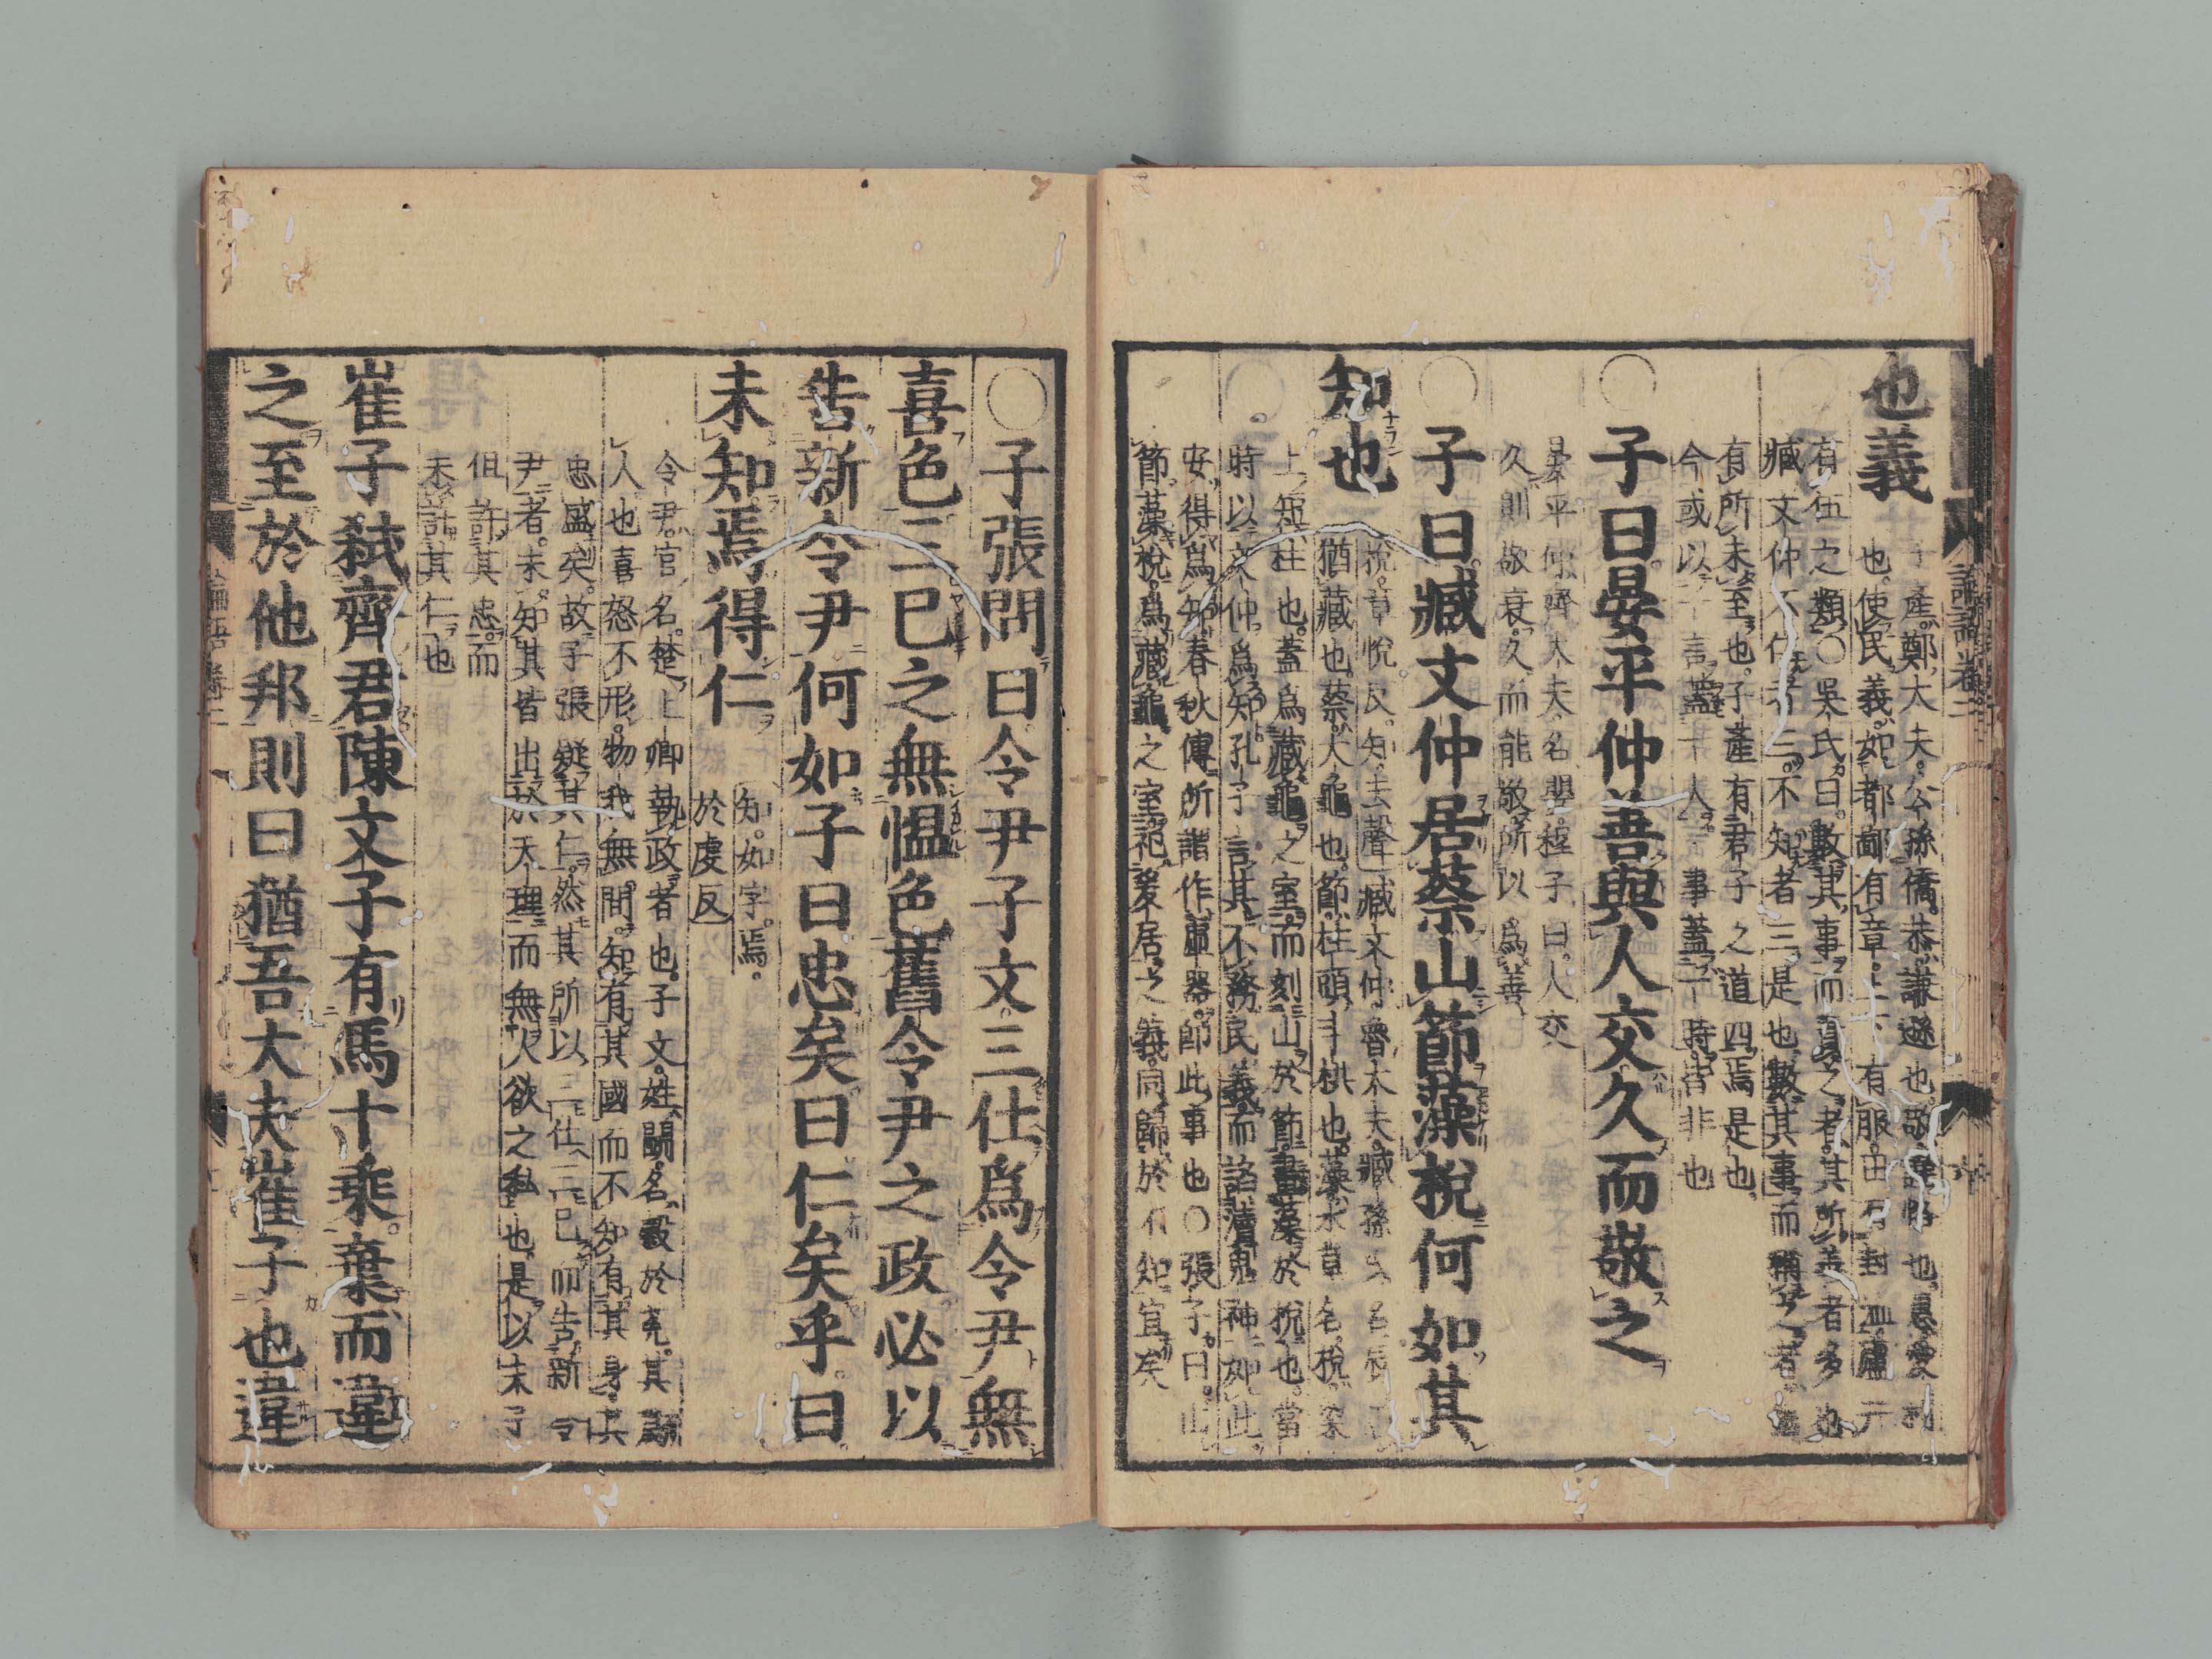 也義
子產鄭大夫公孫僑恭謙遜也敬謹恪也惠愛利
也使民義如都鄙有章上下有服田有封洫廬井
有伍之類○吳氏曰數其事而責之者其所善者多也
臧文仲不仁者三不知者三是也數其事而稱之者猶
有所未至也子產有君子之道四焉是也
今或以一言蓋一人一事蓋一時皆非也
○子曰晏平仲善與人交久而敬之
晏平仲齊大夫名嬰程子曰人交
久則敬衰久而能敬所以爲善
○子曰臧文仲居蔡山節藻梲何如其
知也
梲章悅反知去聲臧文仲魯大夫臧孫氏名辰居
猶藏也蔡大龜也節柱頭斗栱也藻水草名梲梁
上短柱也蓋爲藏龜之室而刻山於節畫藻於梲也當
時以文仲爲知孔子言其不務民義而諂瀆鬼神如此
安得爲知春秋傳所謂作虛器即此事也○張子曰山
節藻梲爲藏龜之室祀爰居之義同歸於不知宜矣
論語卷二
○子張問曰令尹子文三仕爲令尹無
喜色三已之無慍色舊令尹之政必以
告新令尹何如子曰忠矣曰仁矣乎曰
未知焉得仁
知如字焉
於虔反
令尹官名楚上卿執政者也子文姓鬬名穀於菟其爲
人也喜怒不形物我無間知有其國而不知有其身其
忠盛矣故子張疑其仁然其所以三仕三已而告新令
尹者未知其皆出於天理而無人欲之私也是以夫子
但許其忠而
未許其仁也
崔子弒齊君陳文子有馬十乘棄而違
之至於他邦則曰猶吾大夫崔子也違
論語卷二